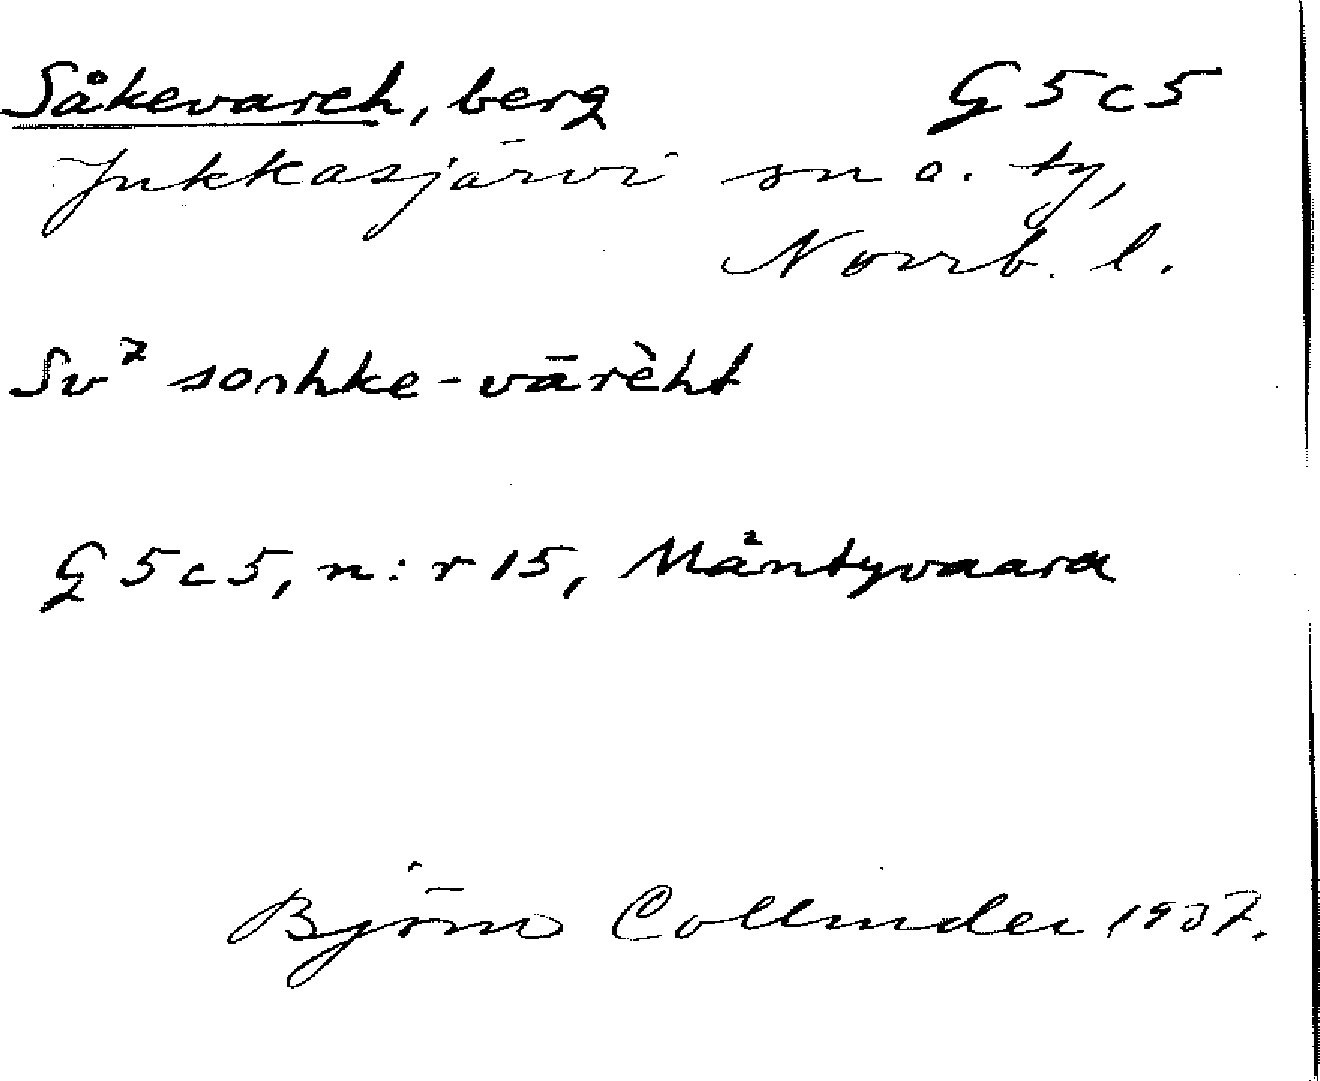 Såkevareh, berg G5c5
Jukkasjärvi sn o. ty,
Norrb. l.
Sv² soɑhke-vārèht
G5c5, n:r 15, Mäntyvaara
Björn Collinder 1937.